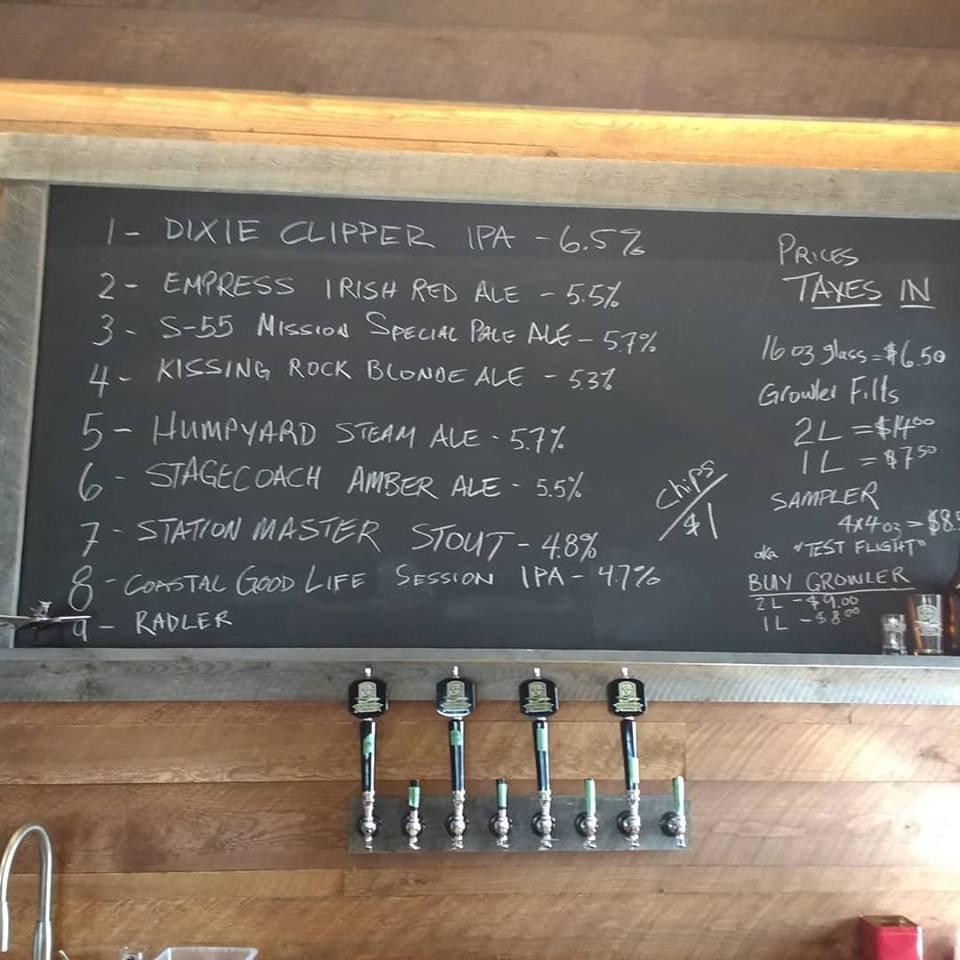 1 - DIXIE CLIPPER IPA - 6.5%
2 - EMPRESS IRISH RED ALE - 5.5%
3 - S-55 MISSION SPECIAL PALE ALE - 5.7%
4 - KISSING ROCK BLONDE ALE - 5.3%
5 - HUMPYARD STEAM ALE - 5.7%
6 - STAGECOACH AMBER ALE - 5.5%
7 - STATION MASTER STOUT - 4.8%
8 - COASTAL GOOD LIFE SESSION IPA - 4.7%
9 - RADLER
Chips
$1
PRICES
TAXES IN
16 oz glass = $6.50
Growler Fills
2L = $14.00
1L = $7.50
SAMPLER
4x4 oz = $8.5
aka "TEST FLIGHT"
BUY GROWLER
2L - $9.00
1L - $8.00